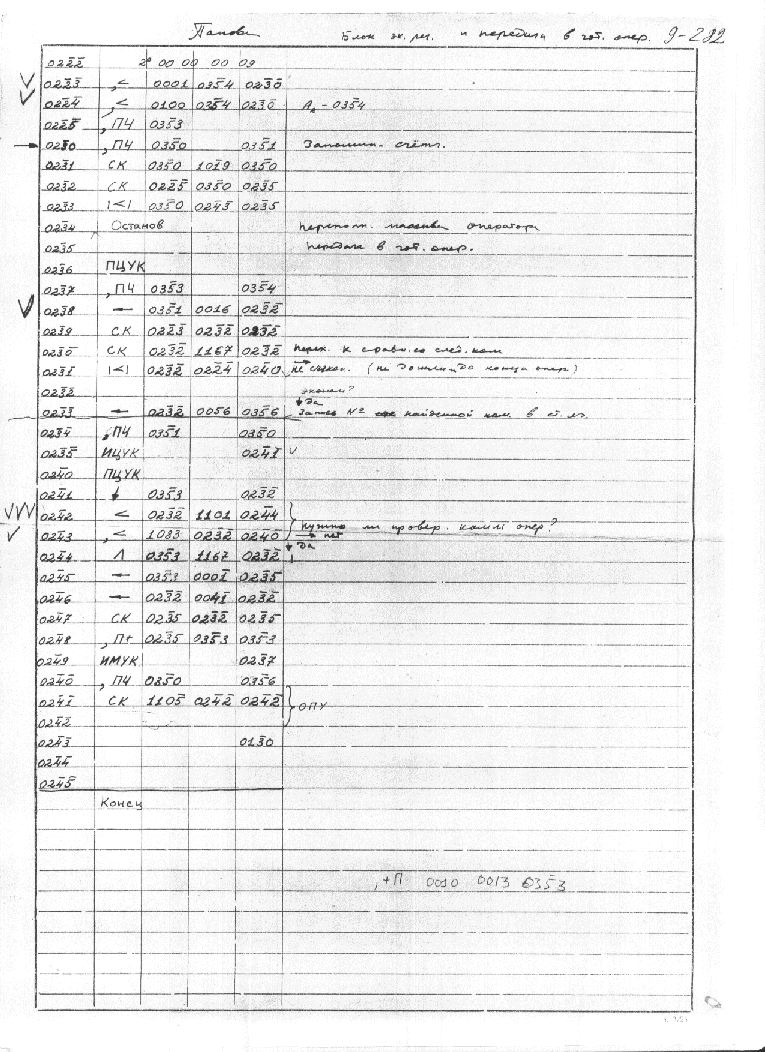 Попова Блок эк. рег. и передача в гот. опер. 9-232
022̅2̅ 2⁰ 00 00 00 09
022̅3̅ ,< 0001 035̅4 023̅0̅
022̅4̅ ,< 0100 035̅4 023̅0̅ А - 035̅4
022̅5̅ , ПЧ 035̅3
023̅0 , ПЧ 035̅0 035̅1 Запомин. счётч.
023̅1 СК 035̅0 1019 035̅0
023̅2 СК 022̅5̅ 035̅0 023̅5
023̅3 |<| 035̅0 024̅3̅ 023̅5
023̅4 Останов переполн. массива оператора
023̅5 передача в гот. опер.
023̅6 ПЦУК
023̅7 , ПЧ 035̅3 035̅4
023̅8 ← 035̅1 0016 023̅2̅
023̅9 СК 022̅3̅ 023̅2̅ 023̅2̅
023̅0̅ СК 023̅2̅ 1167 023̅2̅
023̅1̅ |<| 023̅2̅ 022̅4̅ 024̅0 (не дошли до конца опер)
023̅2̅
→ да
023̅3̅ ← 023̅2̅ 0056 035̅6 Запись № найденной ком. в
023̅4̅ , ПЧ 035̅1 035̅0
023̅5̅ ИЦУК 024̅1̅ V
024̅0 ПЦУК
024̅1 ↓ 035̅3 023̅2̅
024̅2 < 023̅2̅ 1101 024̅4
024̅3 , < 1033 023̅2̅ 024̅0̅ нужно ли провер. опер? → нет
024̅4 Λ 035̅3 1167 023̅2̅ ↓ да
024̅5 ← 035̅3 0001̅ 023̅5
024̅6 ← 023̅2̅ 0041̅ 023̅2̅
024̅7 СК 023̅5 023̅2̅ 023̅5
024̅8 , П+ 023̅5 035̅3 035̅3
024̅9 ИМУК 023̅7
024̅0̅ , ПЧ 035̅0 035̅6
024̅1̅ СК 1105 024̅2̅ 024̅2̅ ОПУ
024̅2̅
024̅3̅ 013̅0
024̅4̅
024̅5̅
Конец
,+П 0010 0013 035̅3